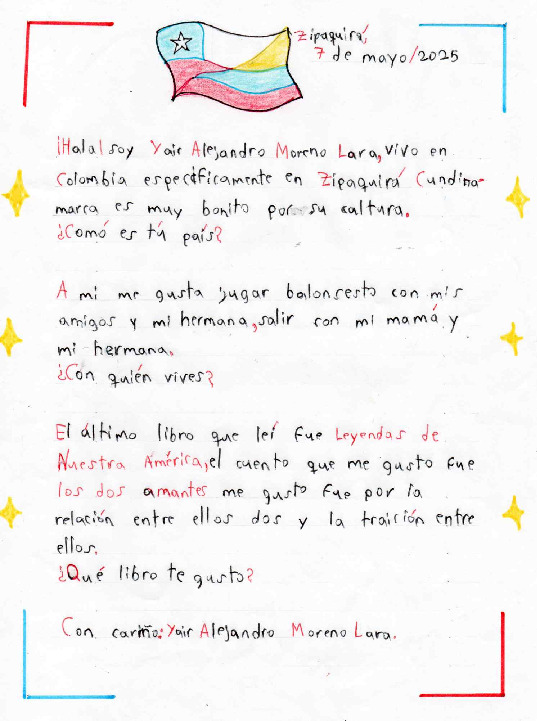 Zipaquirá
7 de mayo/2025
¡Hola! soy Yair Alejandro Moreno Lara, vivo en
Colombia específicamente en Zipaquirá Cundina-
marca es muy bonito por su cultura.
¿Comó es tú país?
A mi me gusta jugar balonsesto con mis
amigos y mi hermana, salir con mi mamá y
mi hermana.
¿Con quién vives?
El último libro que leí fue Leyendas de
Nuestra América, el cuento que me gusto fue
los dos amantes me gusto fue por la
relación entre ellos dos y la traición entre
ellos.
¿Qué libro te gusto?
Con cariño: Yair Alejandro Moreno Lara.